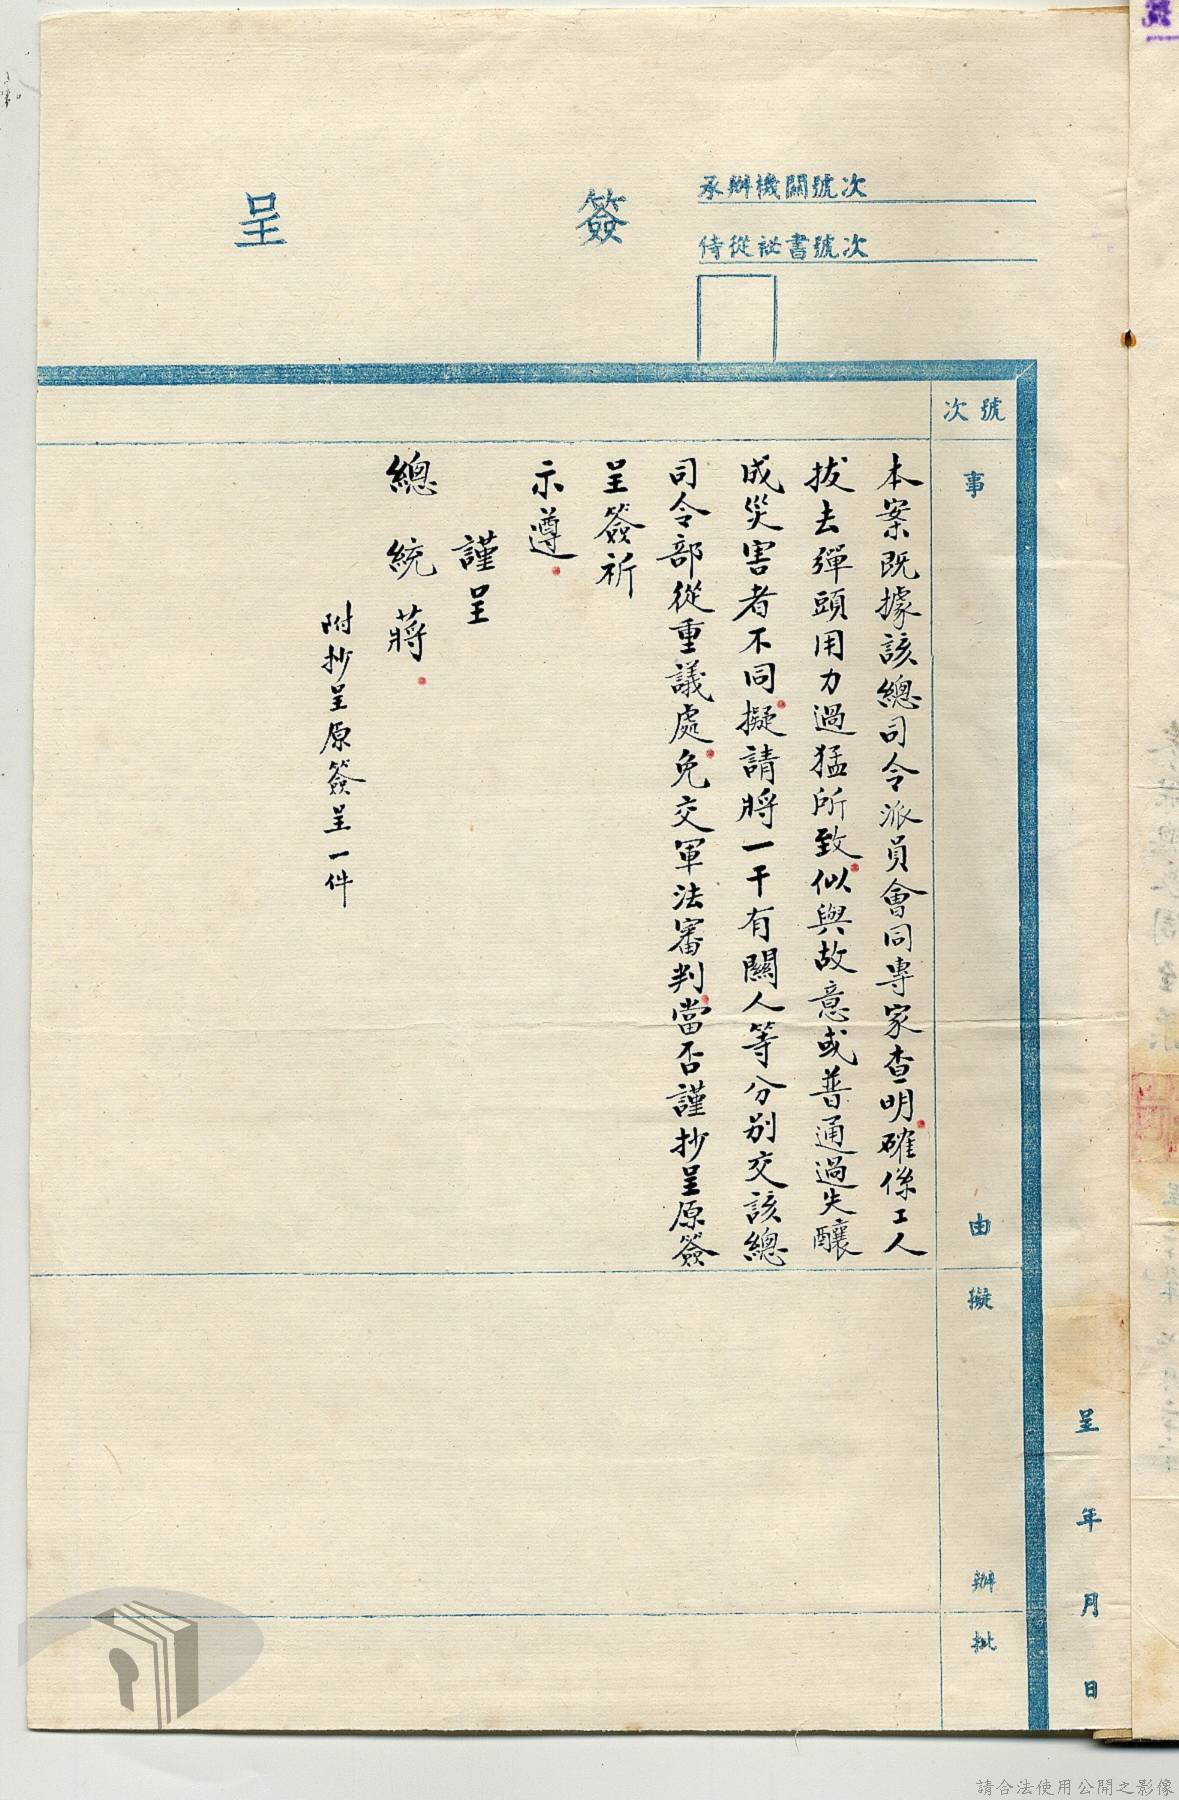 簽呈
承辦機關號次
侍從祕書號次
號次
事由
擬辦
批
呈 年 月 日
本案既據該總司令派員會同專家查明確係工人
拔去彈頭用力過猛所致似與故意或普通過失釀
成災害者不同擬請將一干有關人等分別交該總
司令部從重議處免交軍法審判當否謹抄呈原簽
呈簽祈
示遵
謹呈
總統蔣
附抄呈原簽呈一件
請合法使用公開之影像